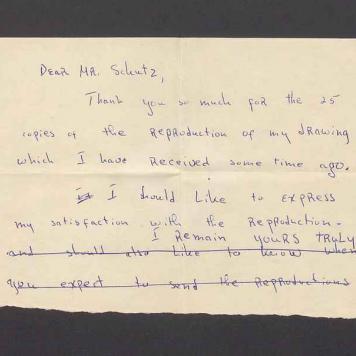 Dear Mr. Schutz,
Thank you so much for the 25
copies of the Reproduction of my drawing
which I have Received some time ago.
I I should Like to express
my satisfaction with the Reproduction.
I Remain yours truly
and should also Like to know when
you expect to send the Reproductions